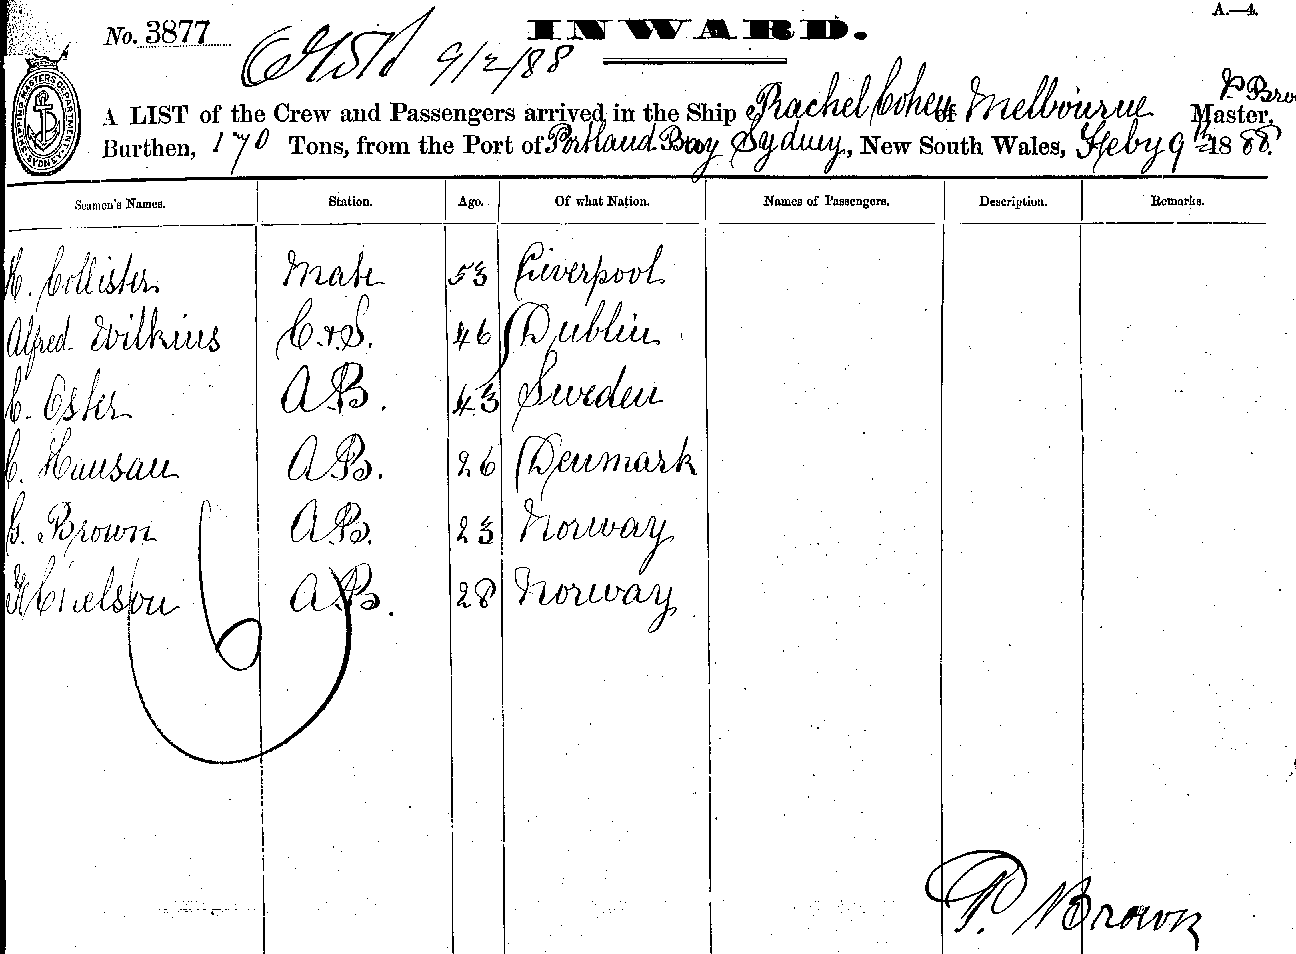 A.—4.
No. 3877 INWARD.
9/2/88
P. Bro
A LIST of the Crew and Passengers arrived in the Ship Rachel Cohen of Melbourne Master,
Burthen, 170 Tons, from the Port of Portland Bay Sydney, New South Wales, Feby 9th 1888.
Seamen's Names. Station. Age. Of what Nation. Names of Passengers. Description. Remarks.
H. Collister Mate 53 Liverpool
Alfred Wilkins C. & S. 46 Dublin
C. Oster A.B. 43 Sweden
C. Hansau A.B. 26 Denmark
G. Brown A.B. 23 Norway
Nielson A.B. 28 Norway
6
P. Brown